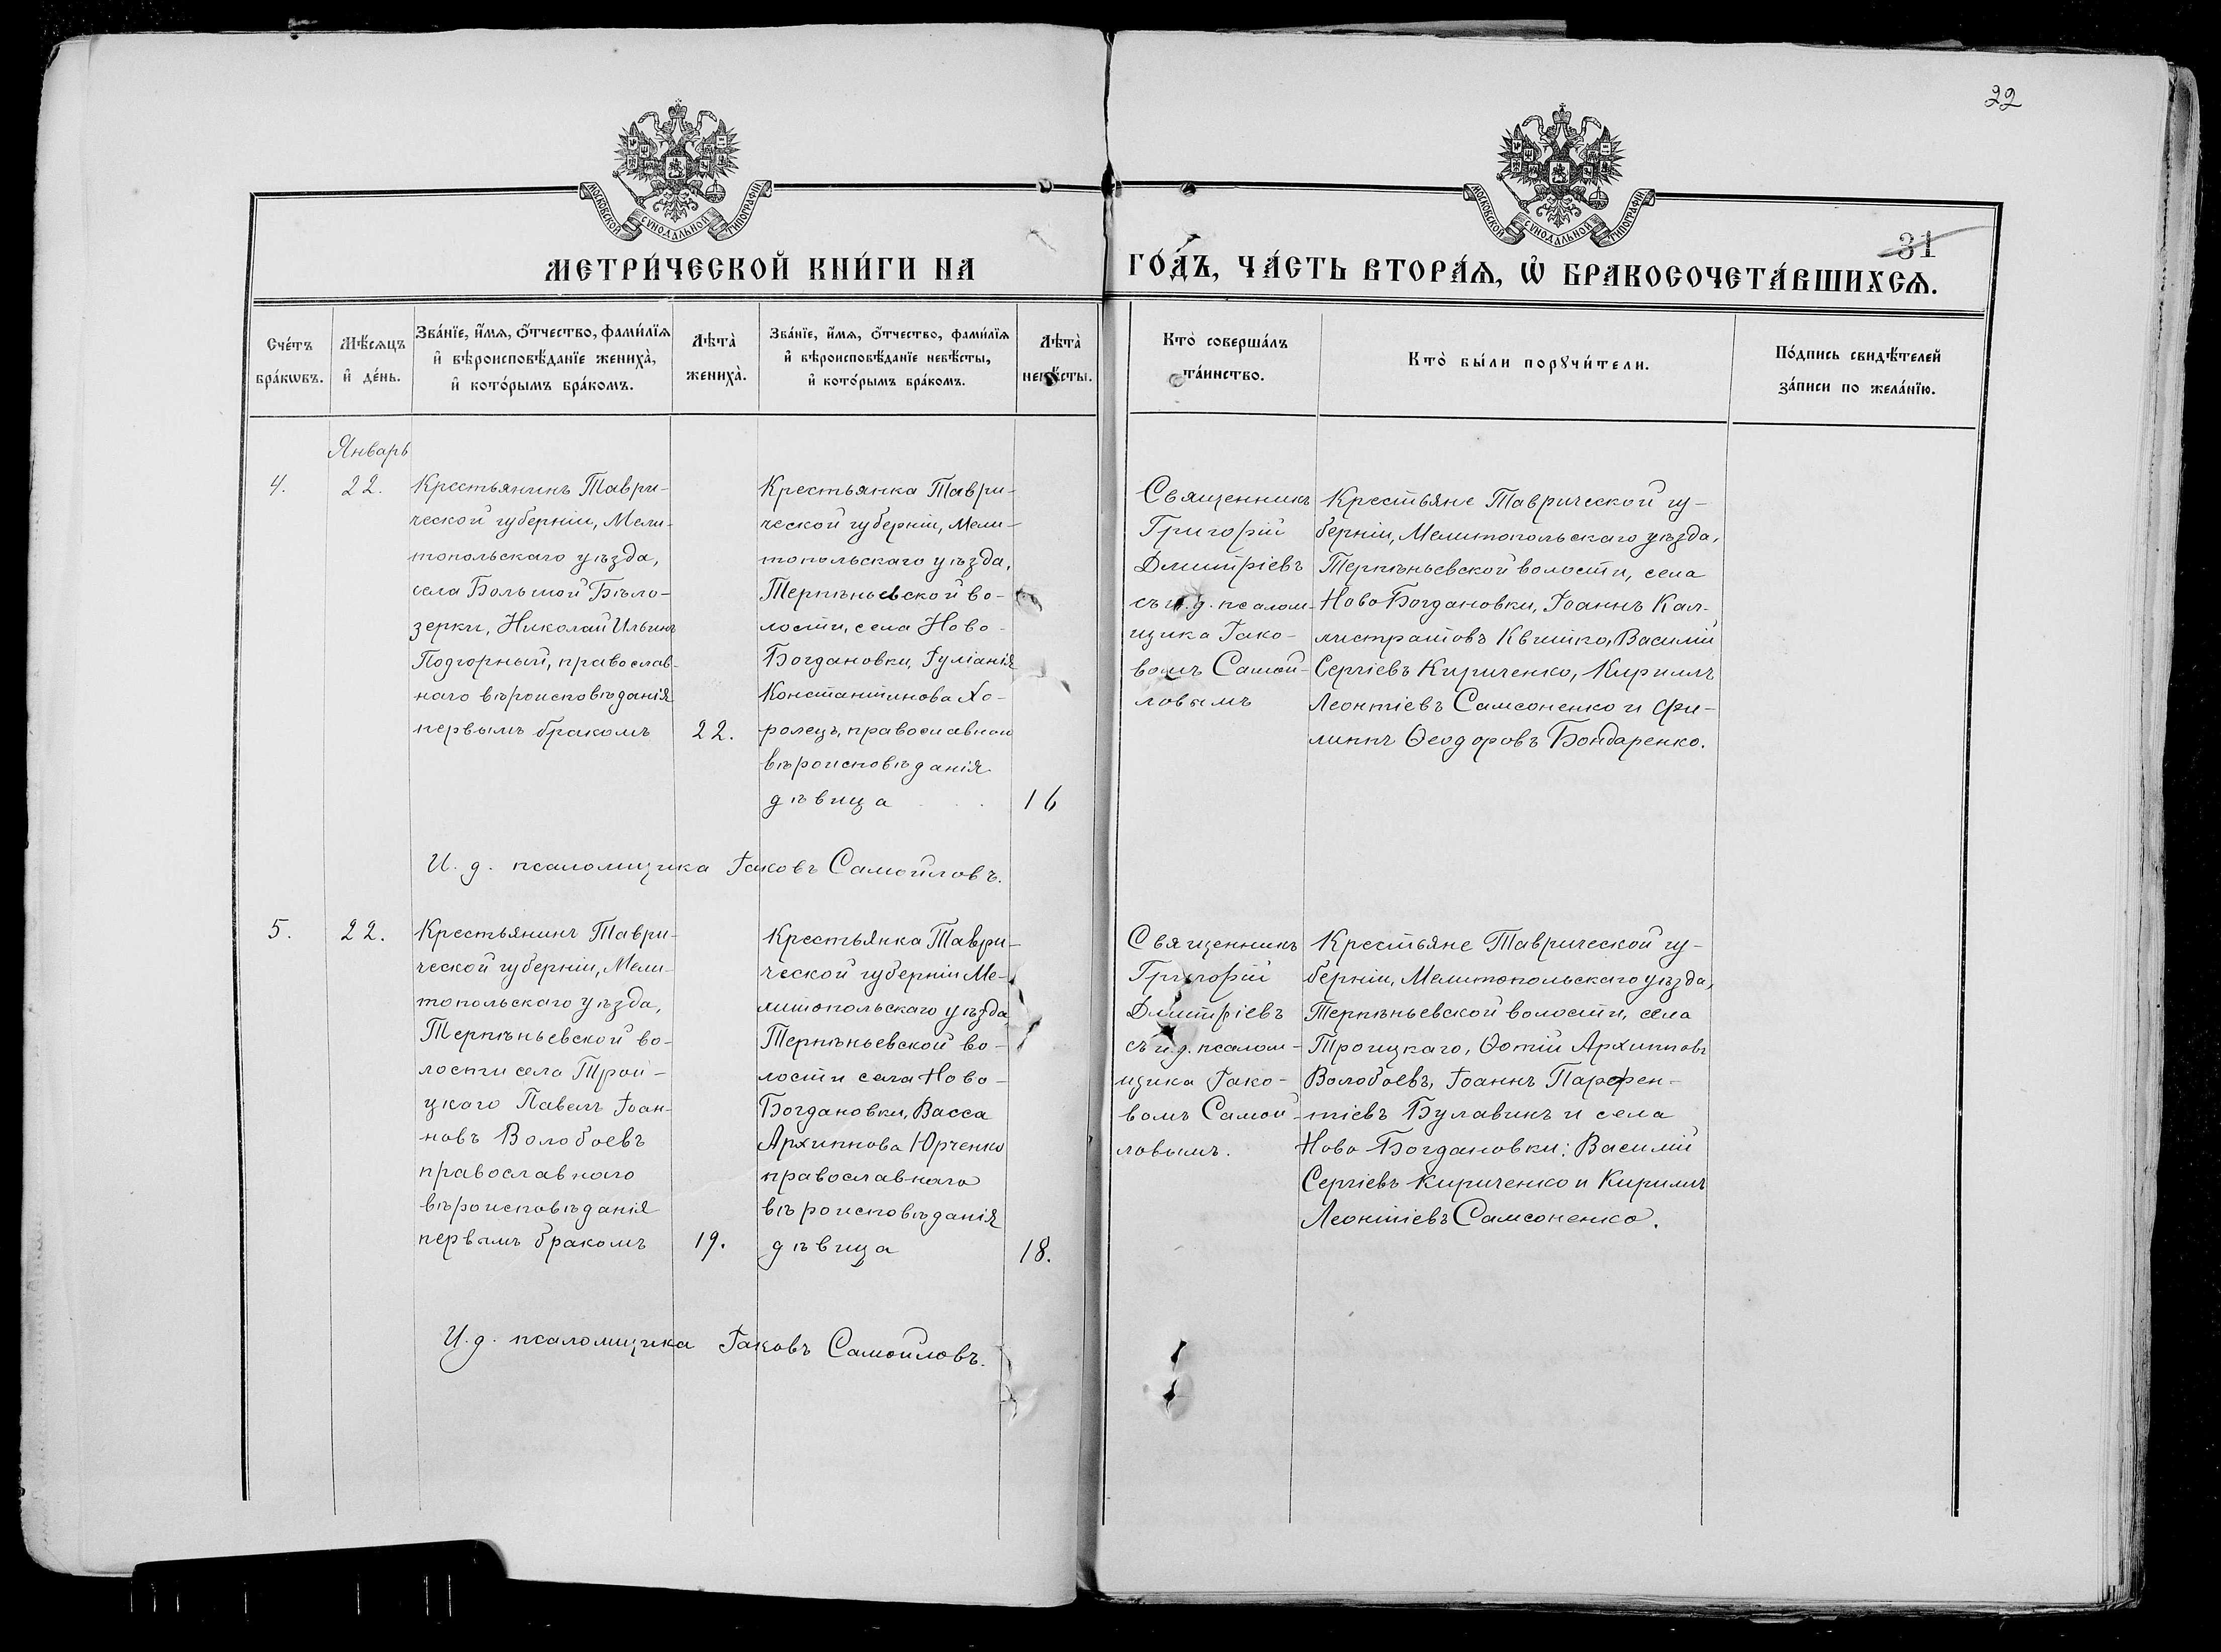 22
МОСКОВСКОЙ СѴНОДАЛЬНОЙ ТИПОГРАФІИ
МОСКОВСКОЙ СѴНОДАЛЬНОЙ ТИПОГРАФІИ
31
МЕТРИ́ЧЕСКОЙ КНИ́ГИ НА
ГО́ДЪ, ЧА́СТЬ ВТОРА́Ѧ, Ѽ БРАКОСОЧЕТА́ВШИХСѦ.
Сче́тъ
бра́кѡвъ.
Мѣ́сѧцъ
и҆ де́нь.
Зва́нїе, и҆́мѧ, ѻ҆́тчество, фами́лїѧ
и҆ вѣроисповѣ́данїе жениха̀,
и҆ кото́рымъ бра́комъ.
Лѣта̀
жениха̀.
Зва́нїе, и҆́мѧ, ѻ҆́тчество, фами́лїѧ
и҆ вѣроисповѣ́данїе невѣ́сты,
и҆ кото́рымъ бра́комъ.
Лѣта̀
невѣ́сты.
Кто̀ соверша́лъ
та́инство.
Кто̀ бы́ли порꙋчи́тели.
По́дпись свидѣ́телей
за́писи по жела́нїю.
Январь
4.
22.
Крестьянинъ Таври-
ческой губерніи, Мели-
топольскаго уѣзда,
села Большой Бѣло-
зерки, Николай Ильинъ
Подгорный, православ-
наго вѣроисповѣданія
первымъ бракомъ
22.
Крестьянка Таври-
ческой губерніи, Мели-
топольскаго уѣзда,
Терпѣньевской во-
лости, села Ново-
Богдановки, Іуліанія
Константинова Хо-
ролецъ, православной
вѣроисповѣданія
дѣвица
16
Священникъ
Григорій
Дмитріевъ
съ и. д. псалом-
щика Іако-
вомъ Самой-
ловымъ
Крестьяне Таврической гу-
берніи, Мелитопольскаго уѣзда,
Терпѣньевской волости, села
Ново Богдановки, Іоаннъ Кал-
листратовъ Квитко, Василій
Сергіевъ Кириченко, Кириллъ
Леонтіевъ Самсоненко и Фи-
липпъ Ѳеодоровъ Бондаренко.
И. д. псаломщика Іаковъ Самойловъ.
5.
22.
Крестьянинъ Таври-
ческой губерніи, Мели-
топольскаго уѣзда,
Терпѣньевской во-
лости села Трои-
цкаго Павелъ Іоан-
новъ Волобоевъ
православнаго
вѣроисповѣданія
первымъ бракомъ
19.
Крестьянка Таври-
ческой губерніи Ме-
литопольскаго уѣзда
Терпѣньевской во-
лости села Ново-
Богдановки, Васса
Архиппова Юрченко
православнаго
вѣроисповѣданія
дѣвица
18.
Священникъ
Григорій
Дмитріевъ
съ и. д. псалом-
щика Іако-
вомъ Самой-
ловымъ.
Крестьяне Таврической гу-
берніи, Мелитопольскаго уѣзда,
Терпѣньевской волости, села
Троицкаго, Ѳотій Архипповъ
Волобоевъ, Іоаннъ Парфен-
тіевъ Булавинъ и села
Ново Богдановки: Василій
Сергіевъ Кириченко и Кириллъ
Леонтіевъ Самсоненко.
И. д. псаломщика Іаковъ Самойловъ.